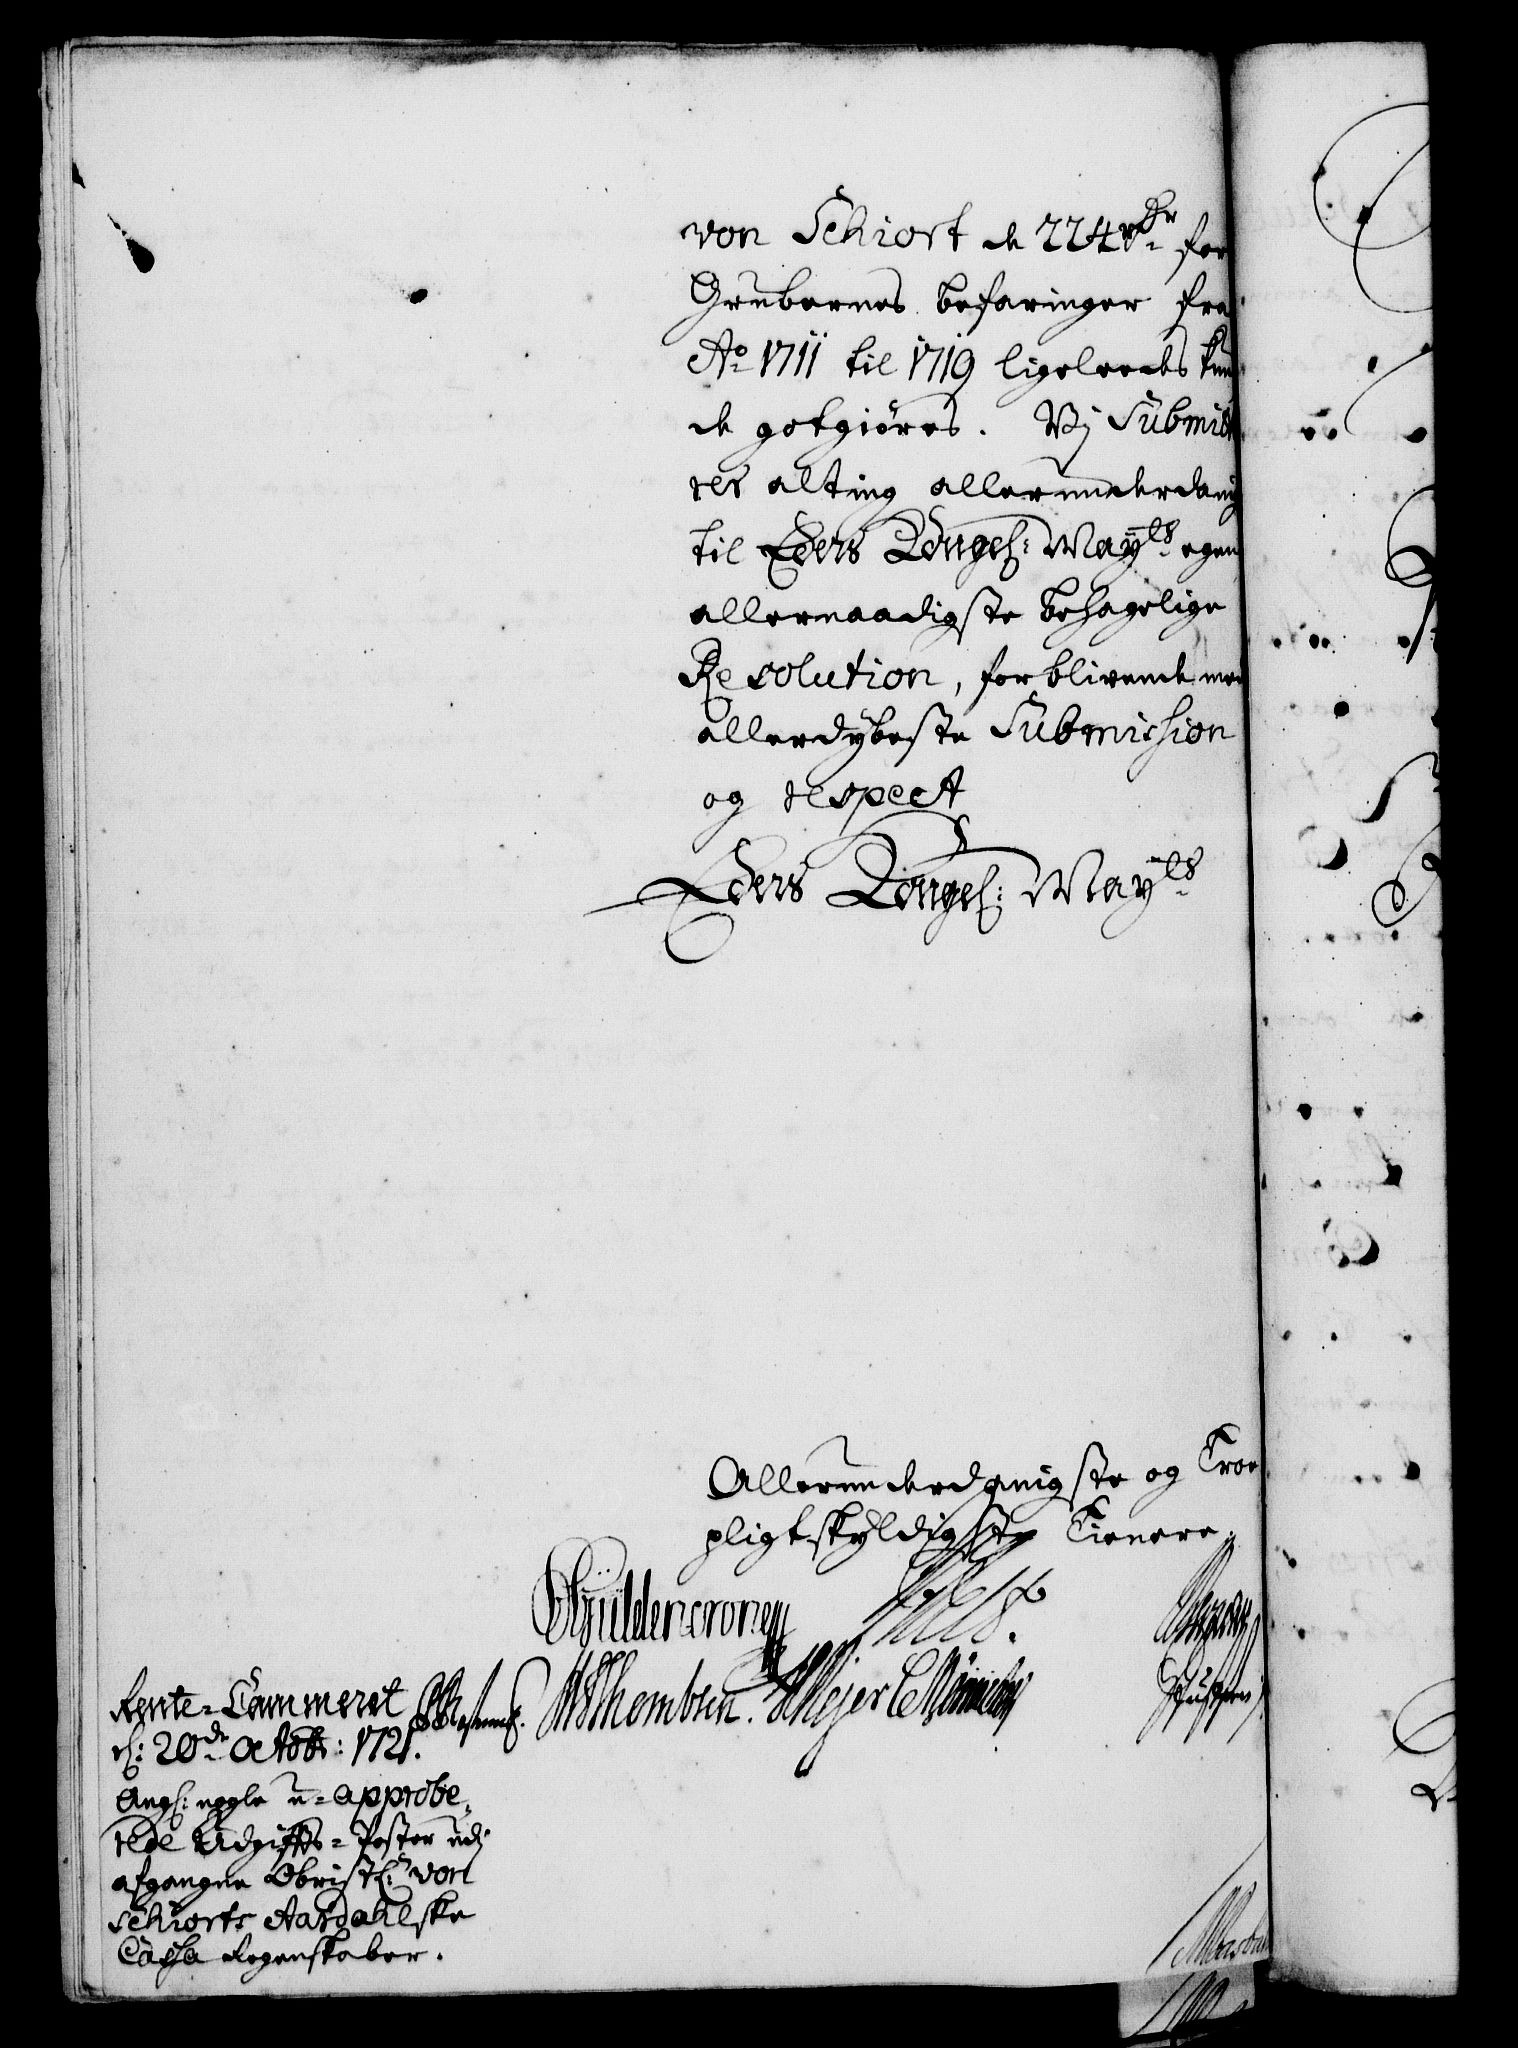 von Schiort de 224 rdr for
Grubernes befaringer fra
Ao 1711 til 1719 ligeleedes kun
de gotgiöres. Vj Submit
ters alting allerunderdanig
til Eders Kongel: Mayts egen
allernaadigste behagelige
Resolution, forblivende med
allerdybeste Submission
og respect
Eders Kongel: Mayts
Allerunderdanigste og Troe
pligtskyldigste Tienere.
CGüldencrone
WThombsen. HMejer
Rente-Cammeret
d: 20de octobr: 1721.
Angl: nogle u-approbe-
rede Udgiffts-Poster udj
afgangne Obristl: von
Schiorts Aardahlske
Cassa Regenskaber.